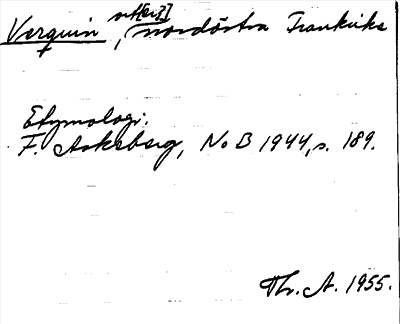 Verquin, nordöstra Frankrike
Etymologi:
F. Askeberg, NoB 1944, s. 189.
Th. A. 1955.